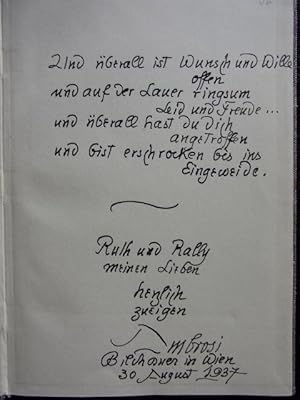 Und überall ist Wunsch und Wille
offen
und auf der Lauer ringsum
Leid und Freude...
und überall hast du dich
angetroffen
und bist erschrocken bis ins
Eingeweide.
Ruth und Rally
meinen Lieben
herzlich
zueigen
Ambrosi
Bildhauer in Wien
30 August 1937